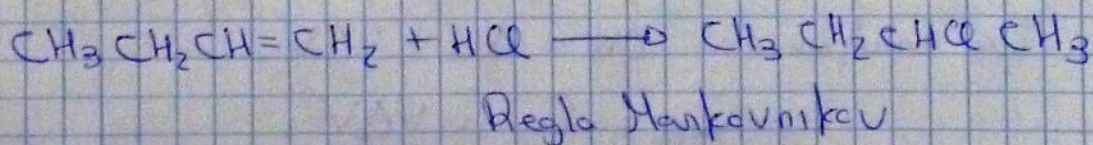 CH₃CH₂CH=CH₂ + HCl → CH₃CH₂CHClCH₃
Regla Markovnikov